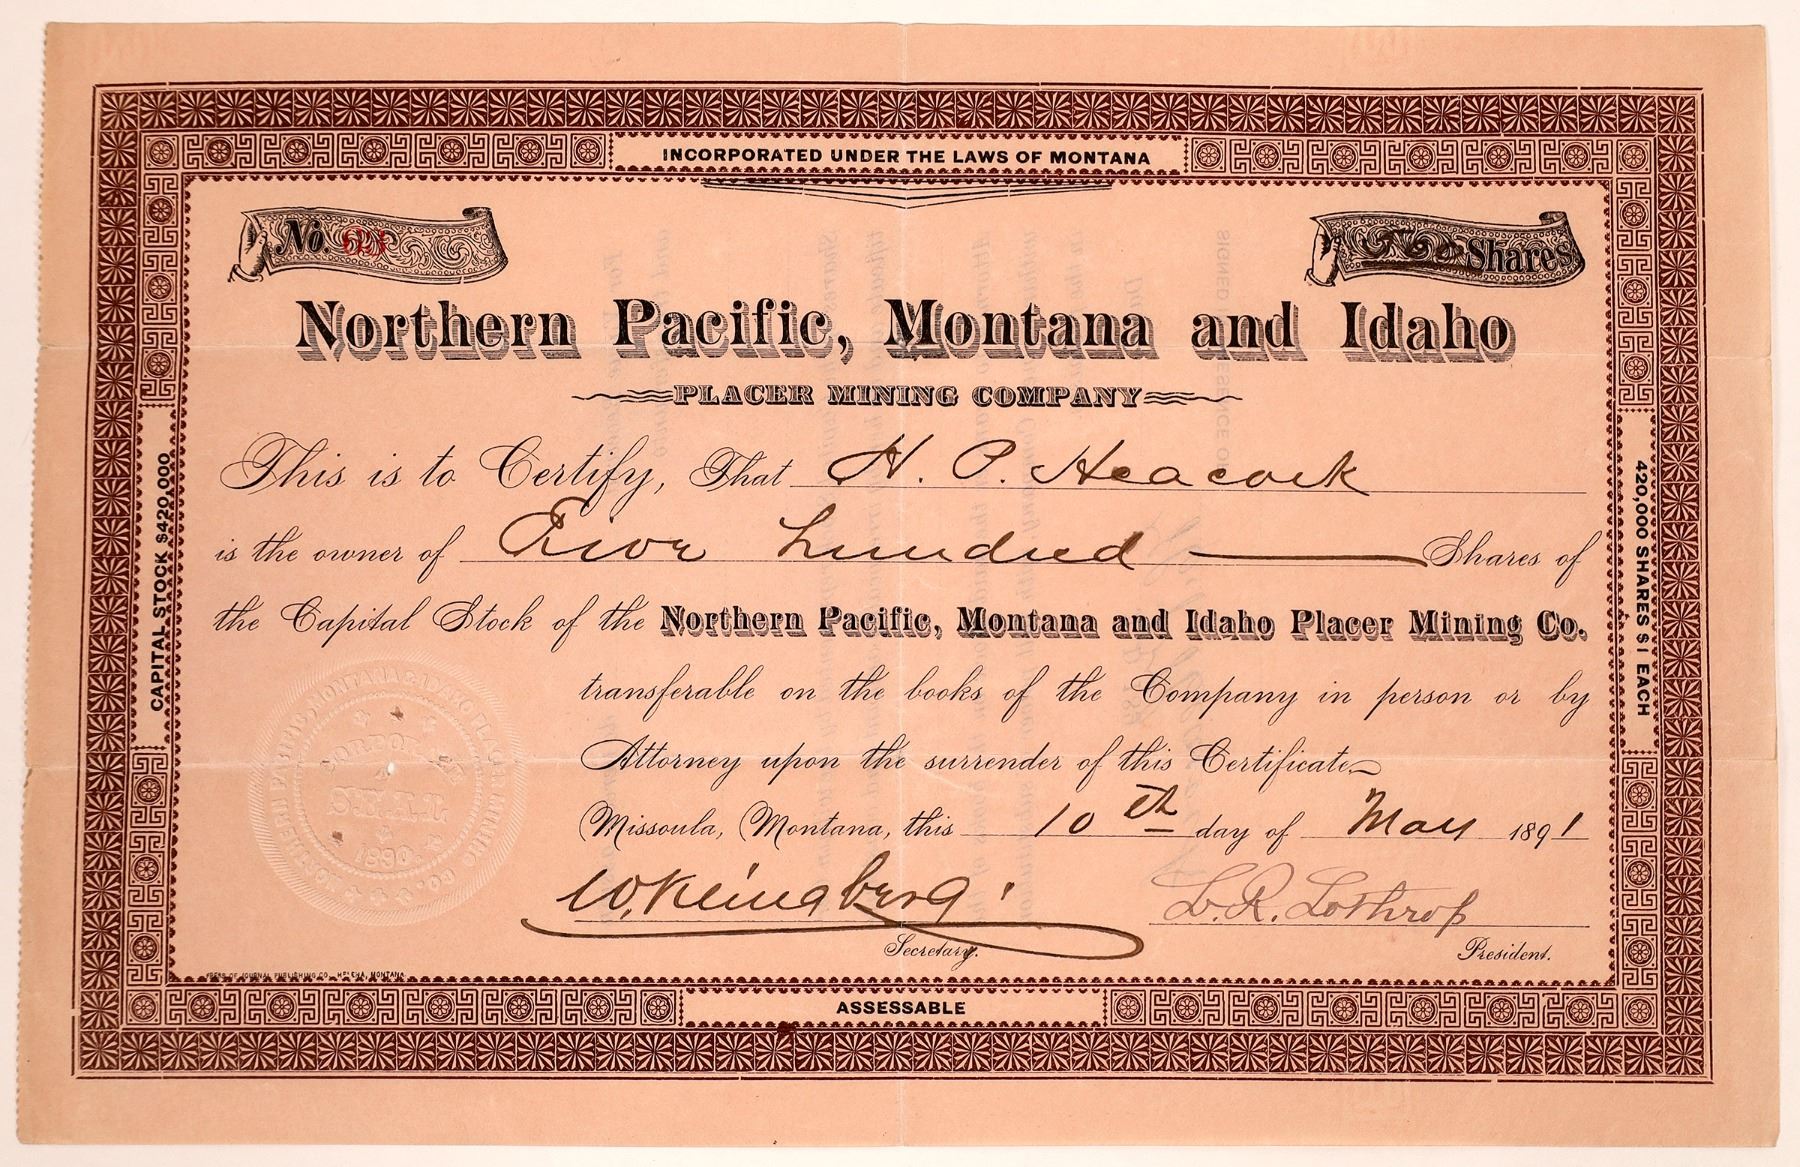 INCORPORATED UNDER THE LAWS OF MONTANA
No.
Shares
Northern Pacific, Montana and Idaho
PLACER MINING COMPANY
This is to Certify, That H. P. Heacock
is the owner of Five Hundred Shares of
the Capital Stock of the Northern Pacific, Montana and Idaho Placer Mining Co.
transferable on the books of the Company in person or by
Attorney upon the surrender of this Certificate
Missoula, Montana, this 10th day of May 1891
W. Kleingberg
L. R. Lothrop
Secretary.
President.
CAPITAL STOCK $420,000
420,000 SHARES $1 EACH
NORTHERN PACIFIC, MONTANA & IDAHO PLACER MINING CO.
CORPORATE
SEAL
1890.
PRESS OF JOURNAL PUBLISHING CO. HELENA, MONTANA.
ASSESSABLE